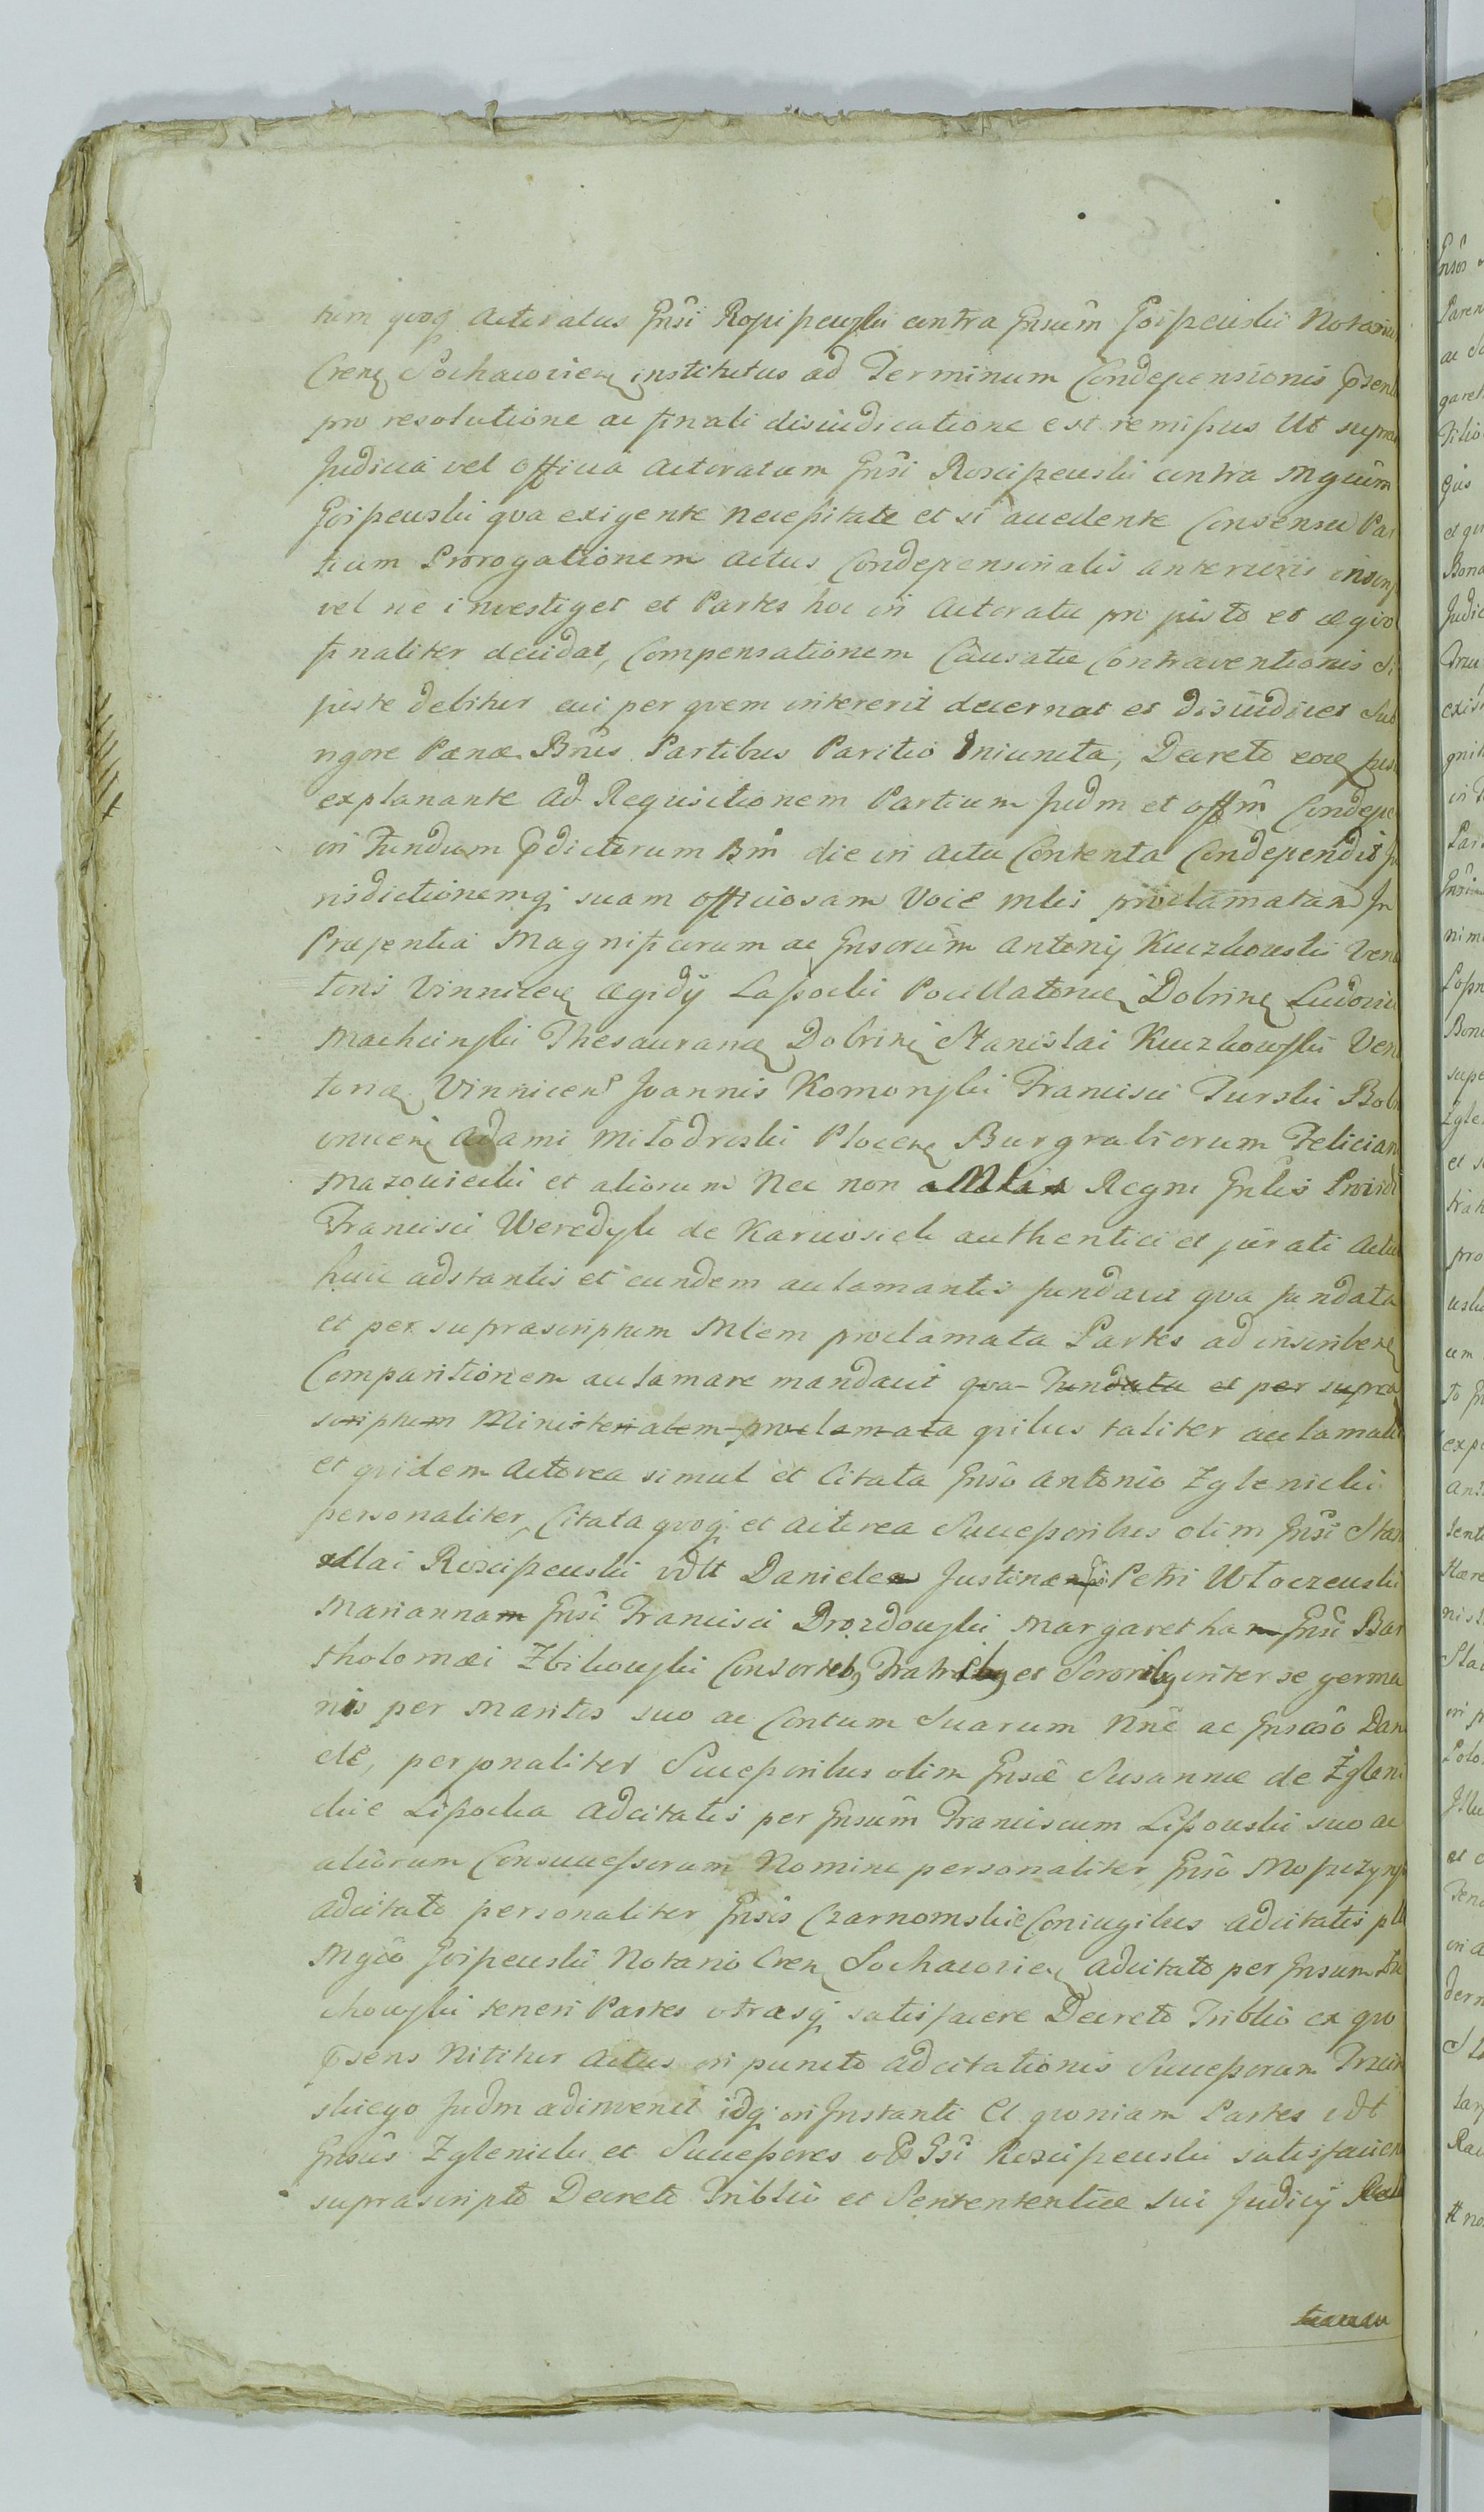 tum quoq actoratus Gnsi Rosciszewski contra Gnsum Goiszewski Notariu
Cren Sochacovien institutus ad Terminum Condescensionis p̃sent
pro resolutione ac finali disiudicatione est remissus Ut supra
Judicia vel officia actoratum Gnsi Rosciszewski contra Mgcum
Goiszewski qva exigente necessitate et si accedente Consensu Par
tium Prorogationem actus Condescensionalis anterioris
vel ne investiget et Partes hoc in actoratu pro justo et æqvo
finaliter decidat, Compensationem Causatæ Contraventionis si
juste debitur cui per qvem intererit decernat et disiudicet sub
rigore Pænæ Bnis Partibus Paritio Iniuncta, Decreto
explanante ad Requisitionem Partium Judm et offm Condesc
in Fundum p̃dictorum Bm̃ die in actu Contenta Condescendit Ju
risdictionemq suam officiosam voce mlis proclamatam In
Præsentia Magnificorum ac Gnsorum Antonij Kuczkowski Vena
toris Vinnicen Ægidij Lasocki Pocillatoris Dobrin Ludovici
Machcinski Thesaurariæ Dobrin Stanislai Kuczkowski Vena
toris Vinnicens Joannis Komorski Francisci Turski Bobr
Adami Miłodroski Plocen Burgrabiorum Felician
Mazowiecki et aliorum Nec non Mlis Regni Gnlis Providi
Francisci Weredyk de Karwosiek authentici et jurati Actui
huic adstantis et eundem acclamantis fundavit qva fundata
et per suprascriptum Mlem proclamata Partes ad inscriben
Comparitionem acclamare mandavit qva Fundata et per supra
scriptum Ministerialem proclamata quibus taliter acclamatis
et qvidem Actorea simul et Citata Gnso Antonio Zglenicki
personaliter, Citata qvoq et Actorea Successoribus olim Gnsi Stan
islai Rosciszewski vdlt Daniele Justina Gnsi Petri Włoczewski
Mariannam Gnsi Francisci Drozdowski Margaretham Gnsi Bar
tholomæi Zbikowski Consortib Fratrib et Sororib inter se germa
nis per Maritos suo ac Contum Suarum Nne ac Gnso Dani
ele, personaliter Successoribus olim Gnsæ Susannæ de Zgleni
ckie Lisocka adcitatis per Gnsum Franciscum Lissowski suo ac
aliorum Consuccessorum Nomine personaliter Gnso Moszczyns
adcitato personaliter Gnsis Czarnomskie Coniugibus adcitatis plr
Mgco Goiszewski Notario Cren Sochacovien adcitato per Gnsum
chowski teneri Partes utrasq satisfacere Decreto Triblis ex quo
p̃sens Nititur Actus in puncto adcitationis Successorum Trzcin
skiego Judm adinvenit idq in Instanti Et qvoniam Partes vdt
Gnsus Zglenicki et Successores olim Gsi Rosciszewski satisfacien
suprascripto Decreto Triblis et Sentententiæ sui Judicij